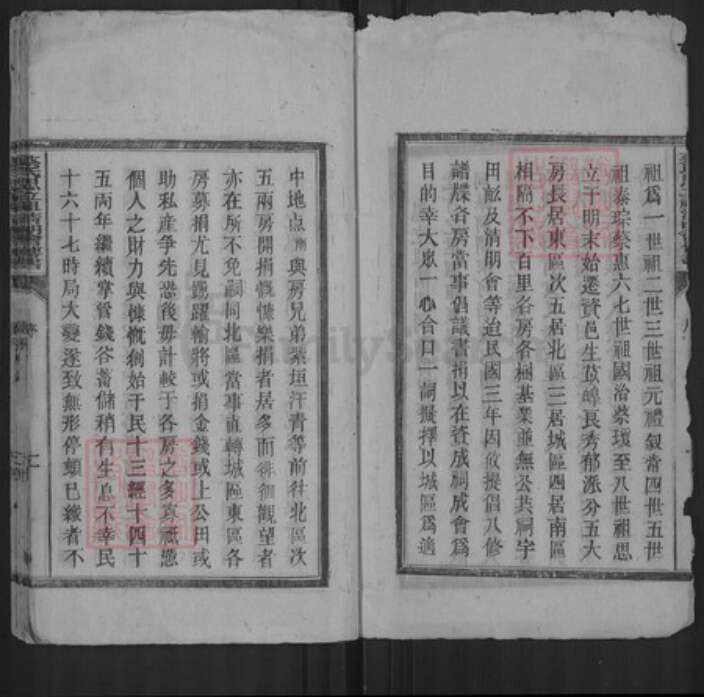 祖爲一世祖二世三世祖元禮叙常四世五世
祖泰琮榮惠六七世祖國治榮瓊至八世祖思
立于明末始遷資邑生苡嶂長秀郁漲分五大
房長居東區次五居北區三居城區四居南區
相隔不下百里各房各樹基業並無公共祠宇
田畝及清明會等迨民國三年因攸提倡八修
譜牒各房當事倡議書捐以在資成祠成會爲
目的幸大衆一心合口一詞擬擇以城區爲適
中地点與房兄弟紫垣汗青等前往北區次
五兩房開捐慨慷樂捐者居多而徘徊觀望者
亦在所不免嗣同北區當事直轉城區東區各
房募捐尤見踴躍輸將或捐金錢或上公田或
助私産争先恐後毋計較于各房之多寡祇憑
個人之財力與慷慨剏始于民十三經十四十
五兩年繼續掌管錢谷蓄儲稍有生息不幸民
十六十七時局大變遂致無形停頓已繳者不
FamilySearch